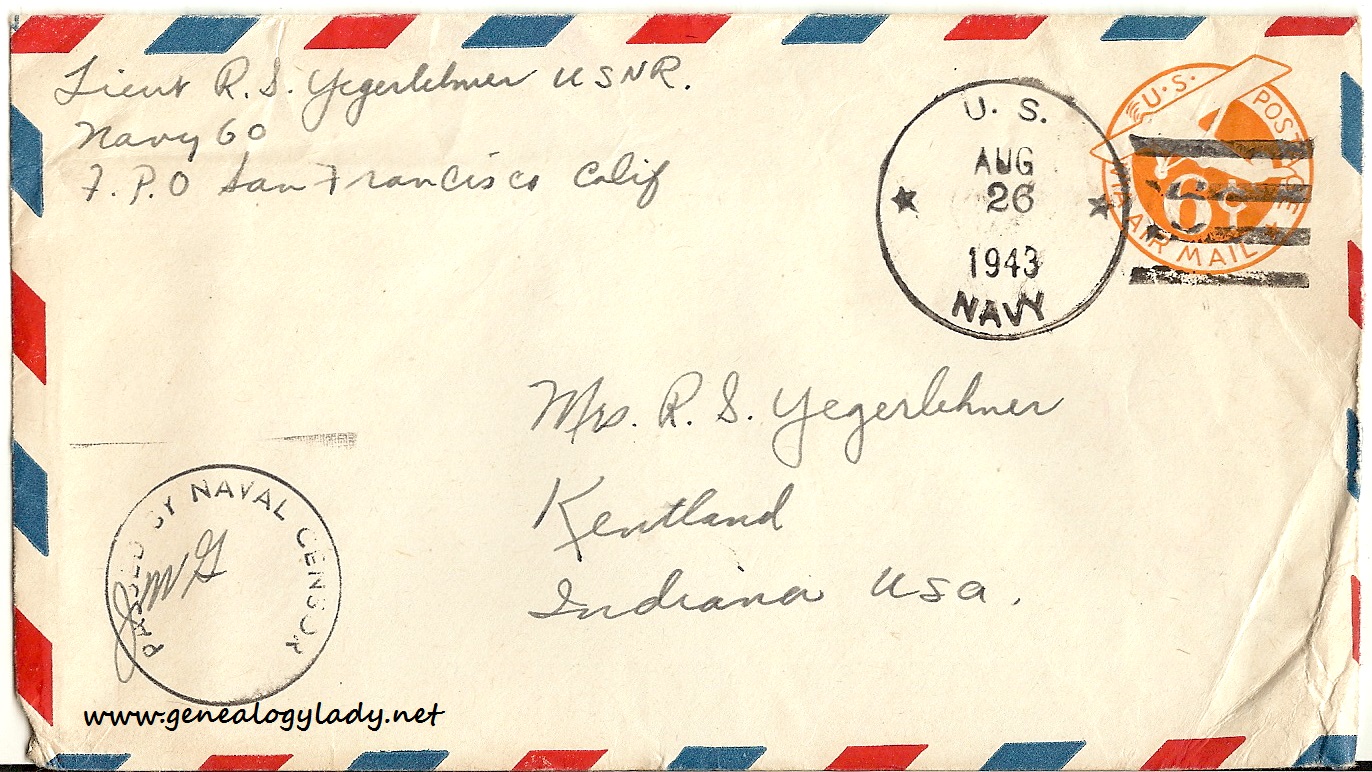 Lieut R. S. Yegerlehner USNR.
Navy 60
F.P.O San Francisco Calif
U. S.
AUG
26
1943
NAVY
U.S. POSTAGE
6¢
VIA AIR MAIL
Mrs. R. S. Yegerlehner
Kentland
Indiana USA.
PASSED BY NAVAL CENSOR
JMG
www.genealogylady.net